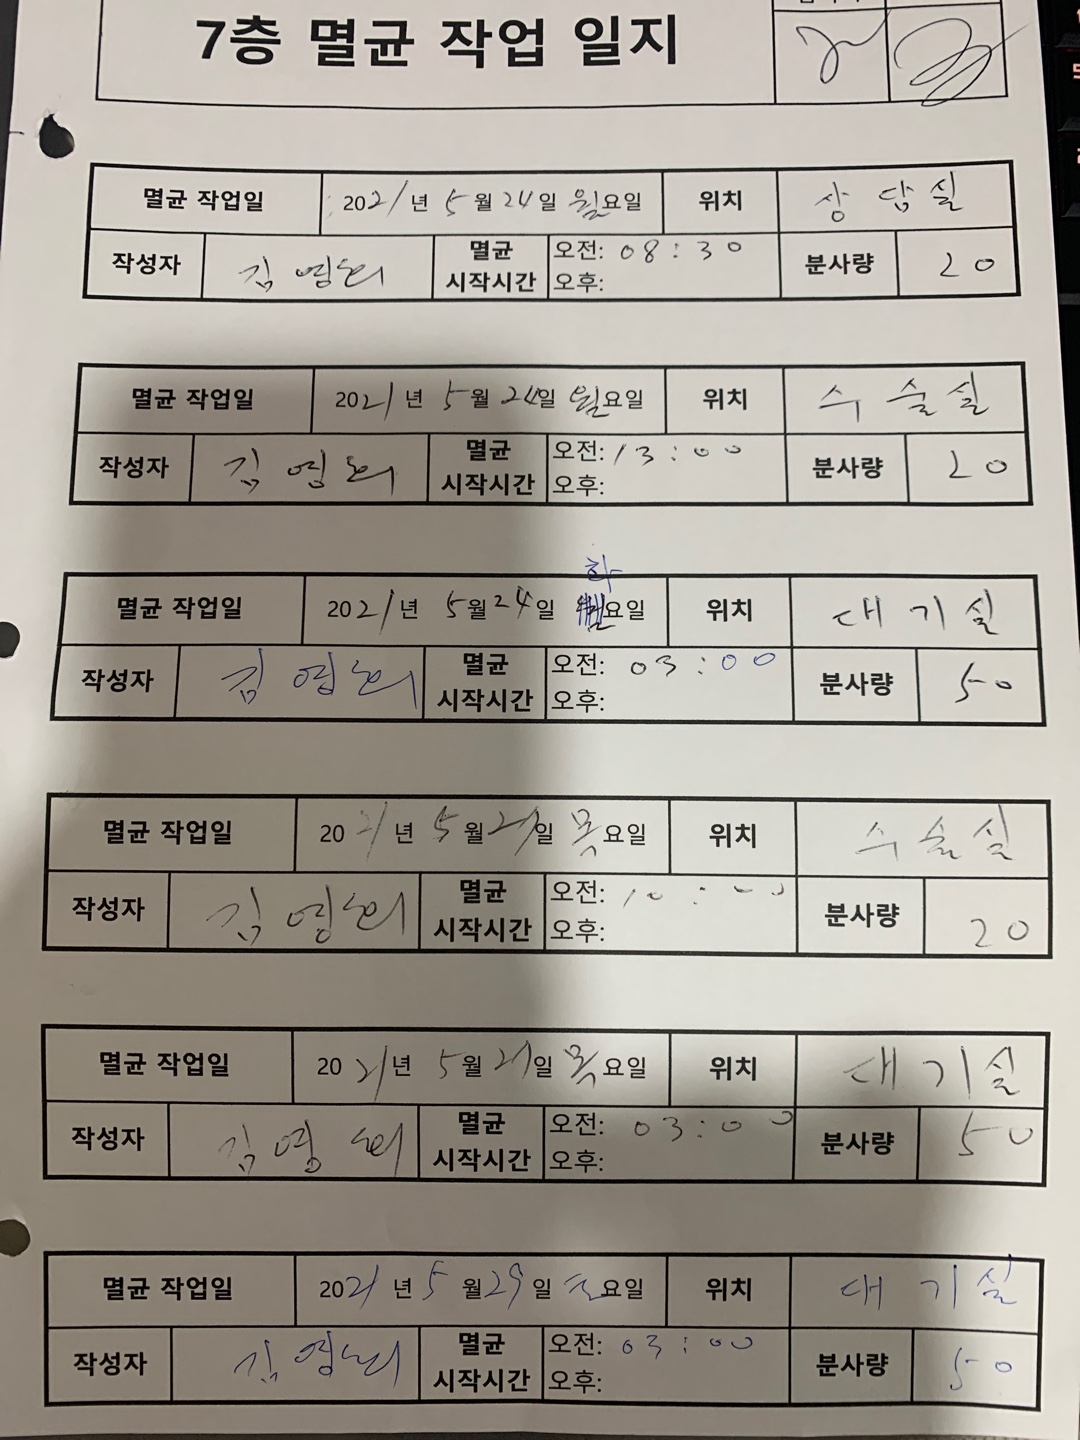 7층 멸균 작업 일지
멸균 작업일 2021년 5월 24일 월요일 위치 상담실
작성자 김영희 멸균 시작시간 오전: 08:30 분사량 20
오후:
멸균 작업일 2021년 5월 24일 월요일 위치 수술실
작성자 김영희 멸균 시작시간 오전: 13:00 분사량 20
오후:
화
멸균 작업일 2021년 5월 24일 요일 위치 대기실
작성자 김영희 멸균 시작시간 오전: 03:00 분사량 50
오후:
멸균 작업일 2021년 5월 일 목요일 위치 수술실
작성자 김영희 멸균 시작시간 오전: 10:00 분사량 20
오후:
멸균 작업일 2021년 5월 일 목요일 위치 대기실
작성자 김영희 멸균 시작시간 오전: 03:00 분사량 50
오후:
멸균 작업일 2021년 5월 29일 토요일 위치 대기실
작성자 김영희 멸균 시작시간 오전: 03:00 분사량 50
오후: